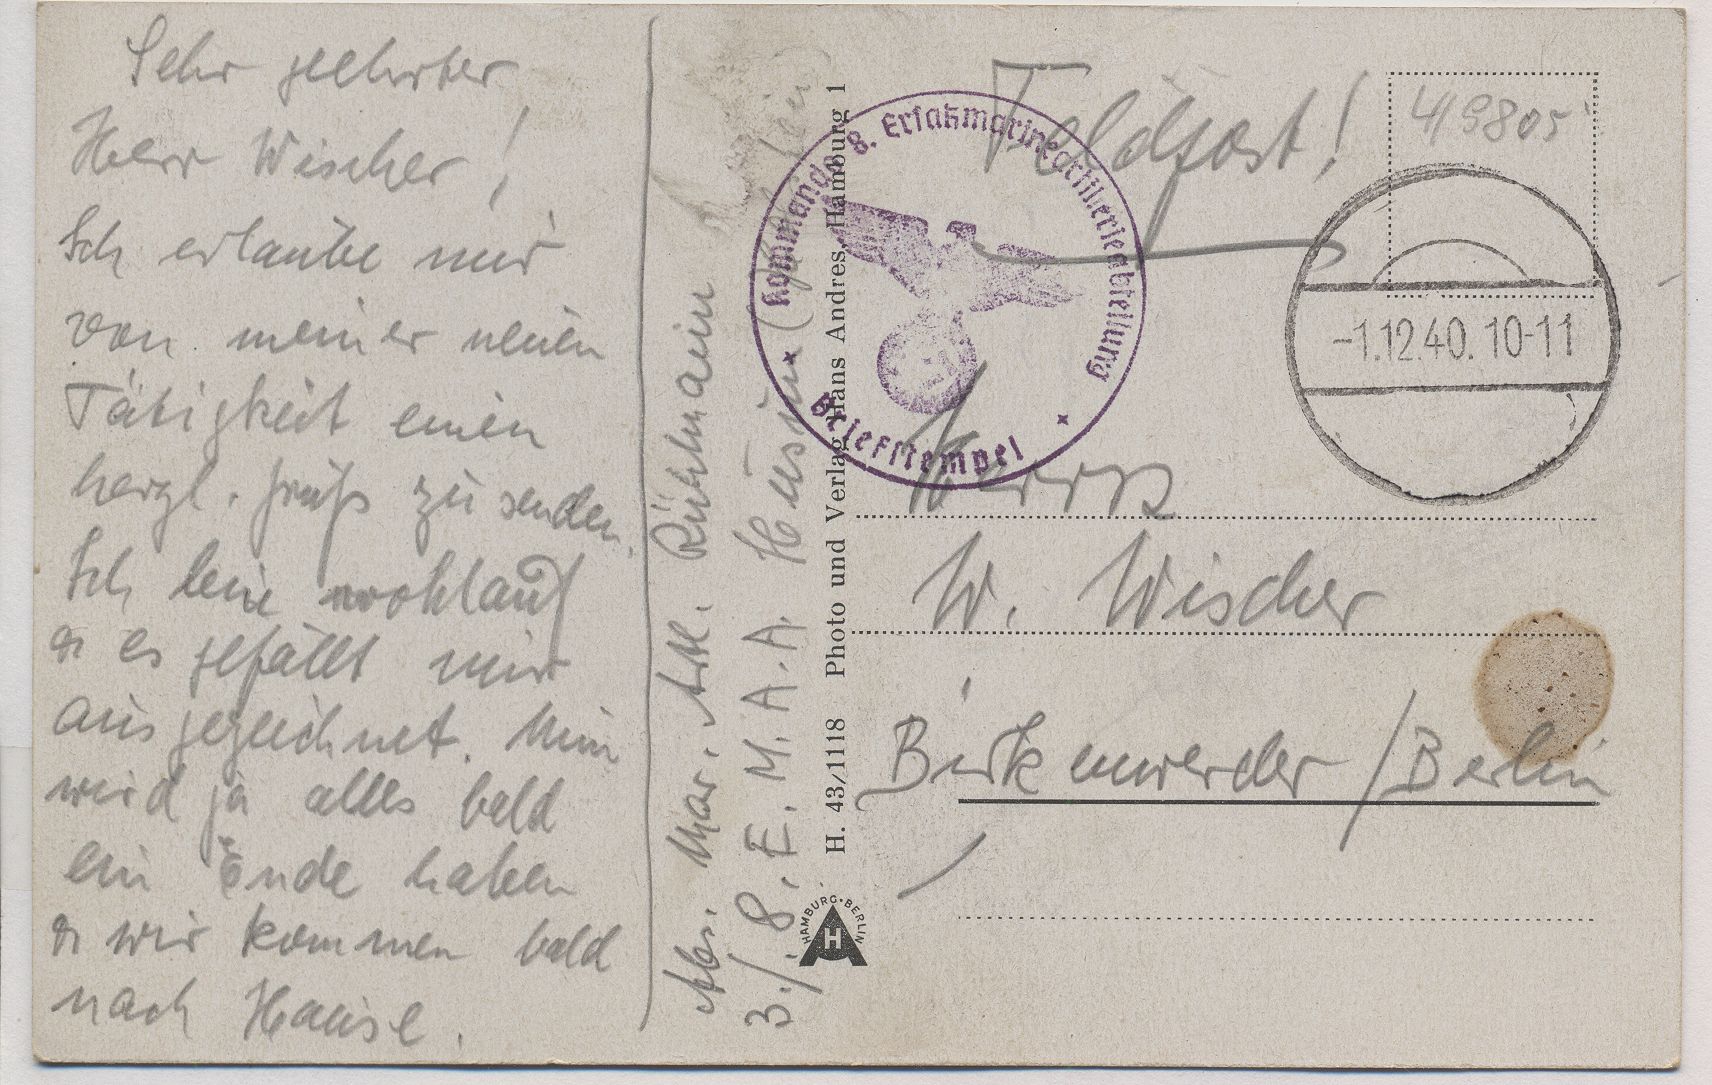 Sehr geehrter
Herr Wischer!
Ich erlaube mir
von meiner neuen
Tätigkeit einen
herzl. Gruß zu senden.
Ich bin wohlauf
u es gefällt mir
ausgezeichnet. Nun
wird ja alles bald
ein Ende haben
u wir kommen bald
nach Hause.
Abs. Mar. Artl. Rühlmann
3./8. E. M. A. A. Husum
H. 43/1118 Photo und Verlag Hans Andres, Hamburg 1
HAMBURG·BERLIN
HA
Kommando 8. Ersatzmarineartillerieabteilung
Briefstempel
Feldpost!
4/9805
-1.12.40. 10-11
Herrn
W. Wischer
Birkenwerder/Berlin